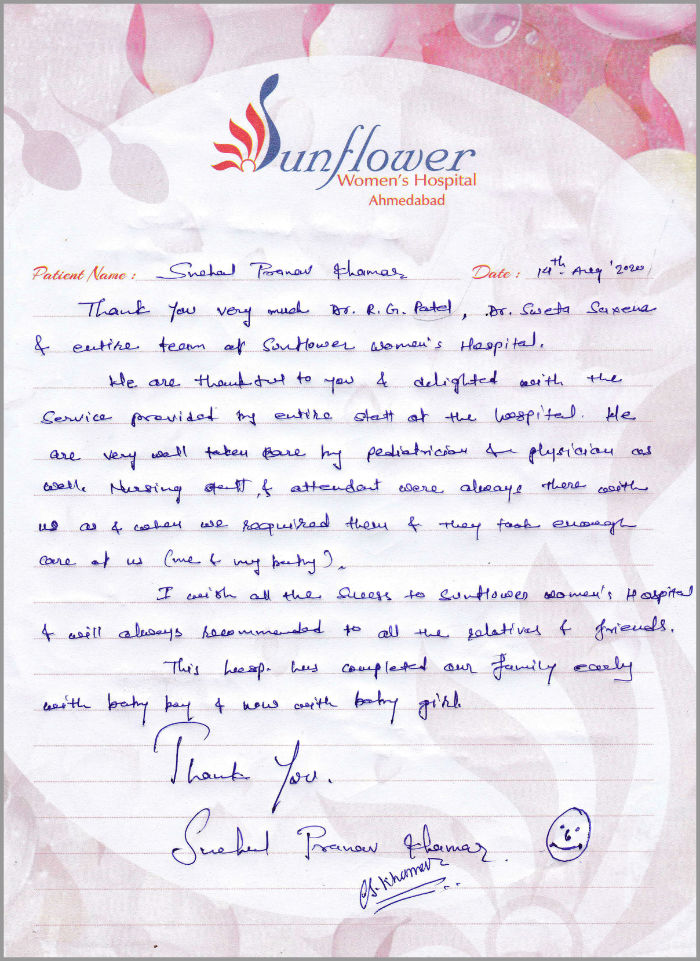 Sunflower
Women's Hospital
Ahmedabad
Patient Name : Snehal Pranav Khamar Date : 14th Aug '2020
Thank you very much Dr. R.G. Patel, Dr. Sweta Saxena
& entire team of Sunflower women's Hospital.
We are thankful to you & delighted with the
Service provided by entire staff of the hospital. We
are very well taken care by pediatrician & physician as
well. Nursing staff & attendant were always there with
us as & when we required them & they took enough
care of us (me & my baby).
I wish all the Sucess to Sunflower women's Hospital
& will always recommended to all the relatives & friends.
This hosp. has completed our family early
with baby boy & now with baby girl.
Thank You.
Snehal Pranav Khamar.
S. Khamar